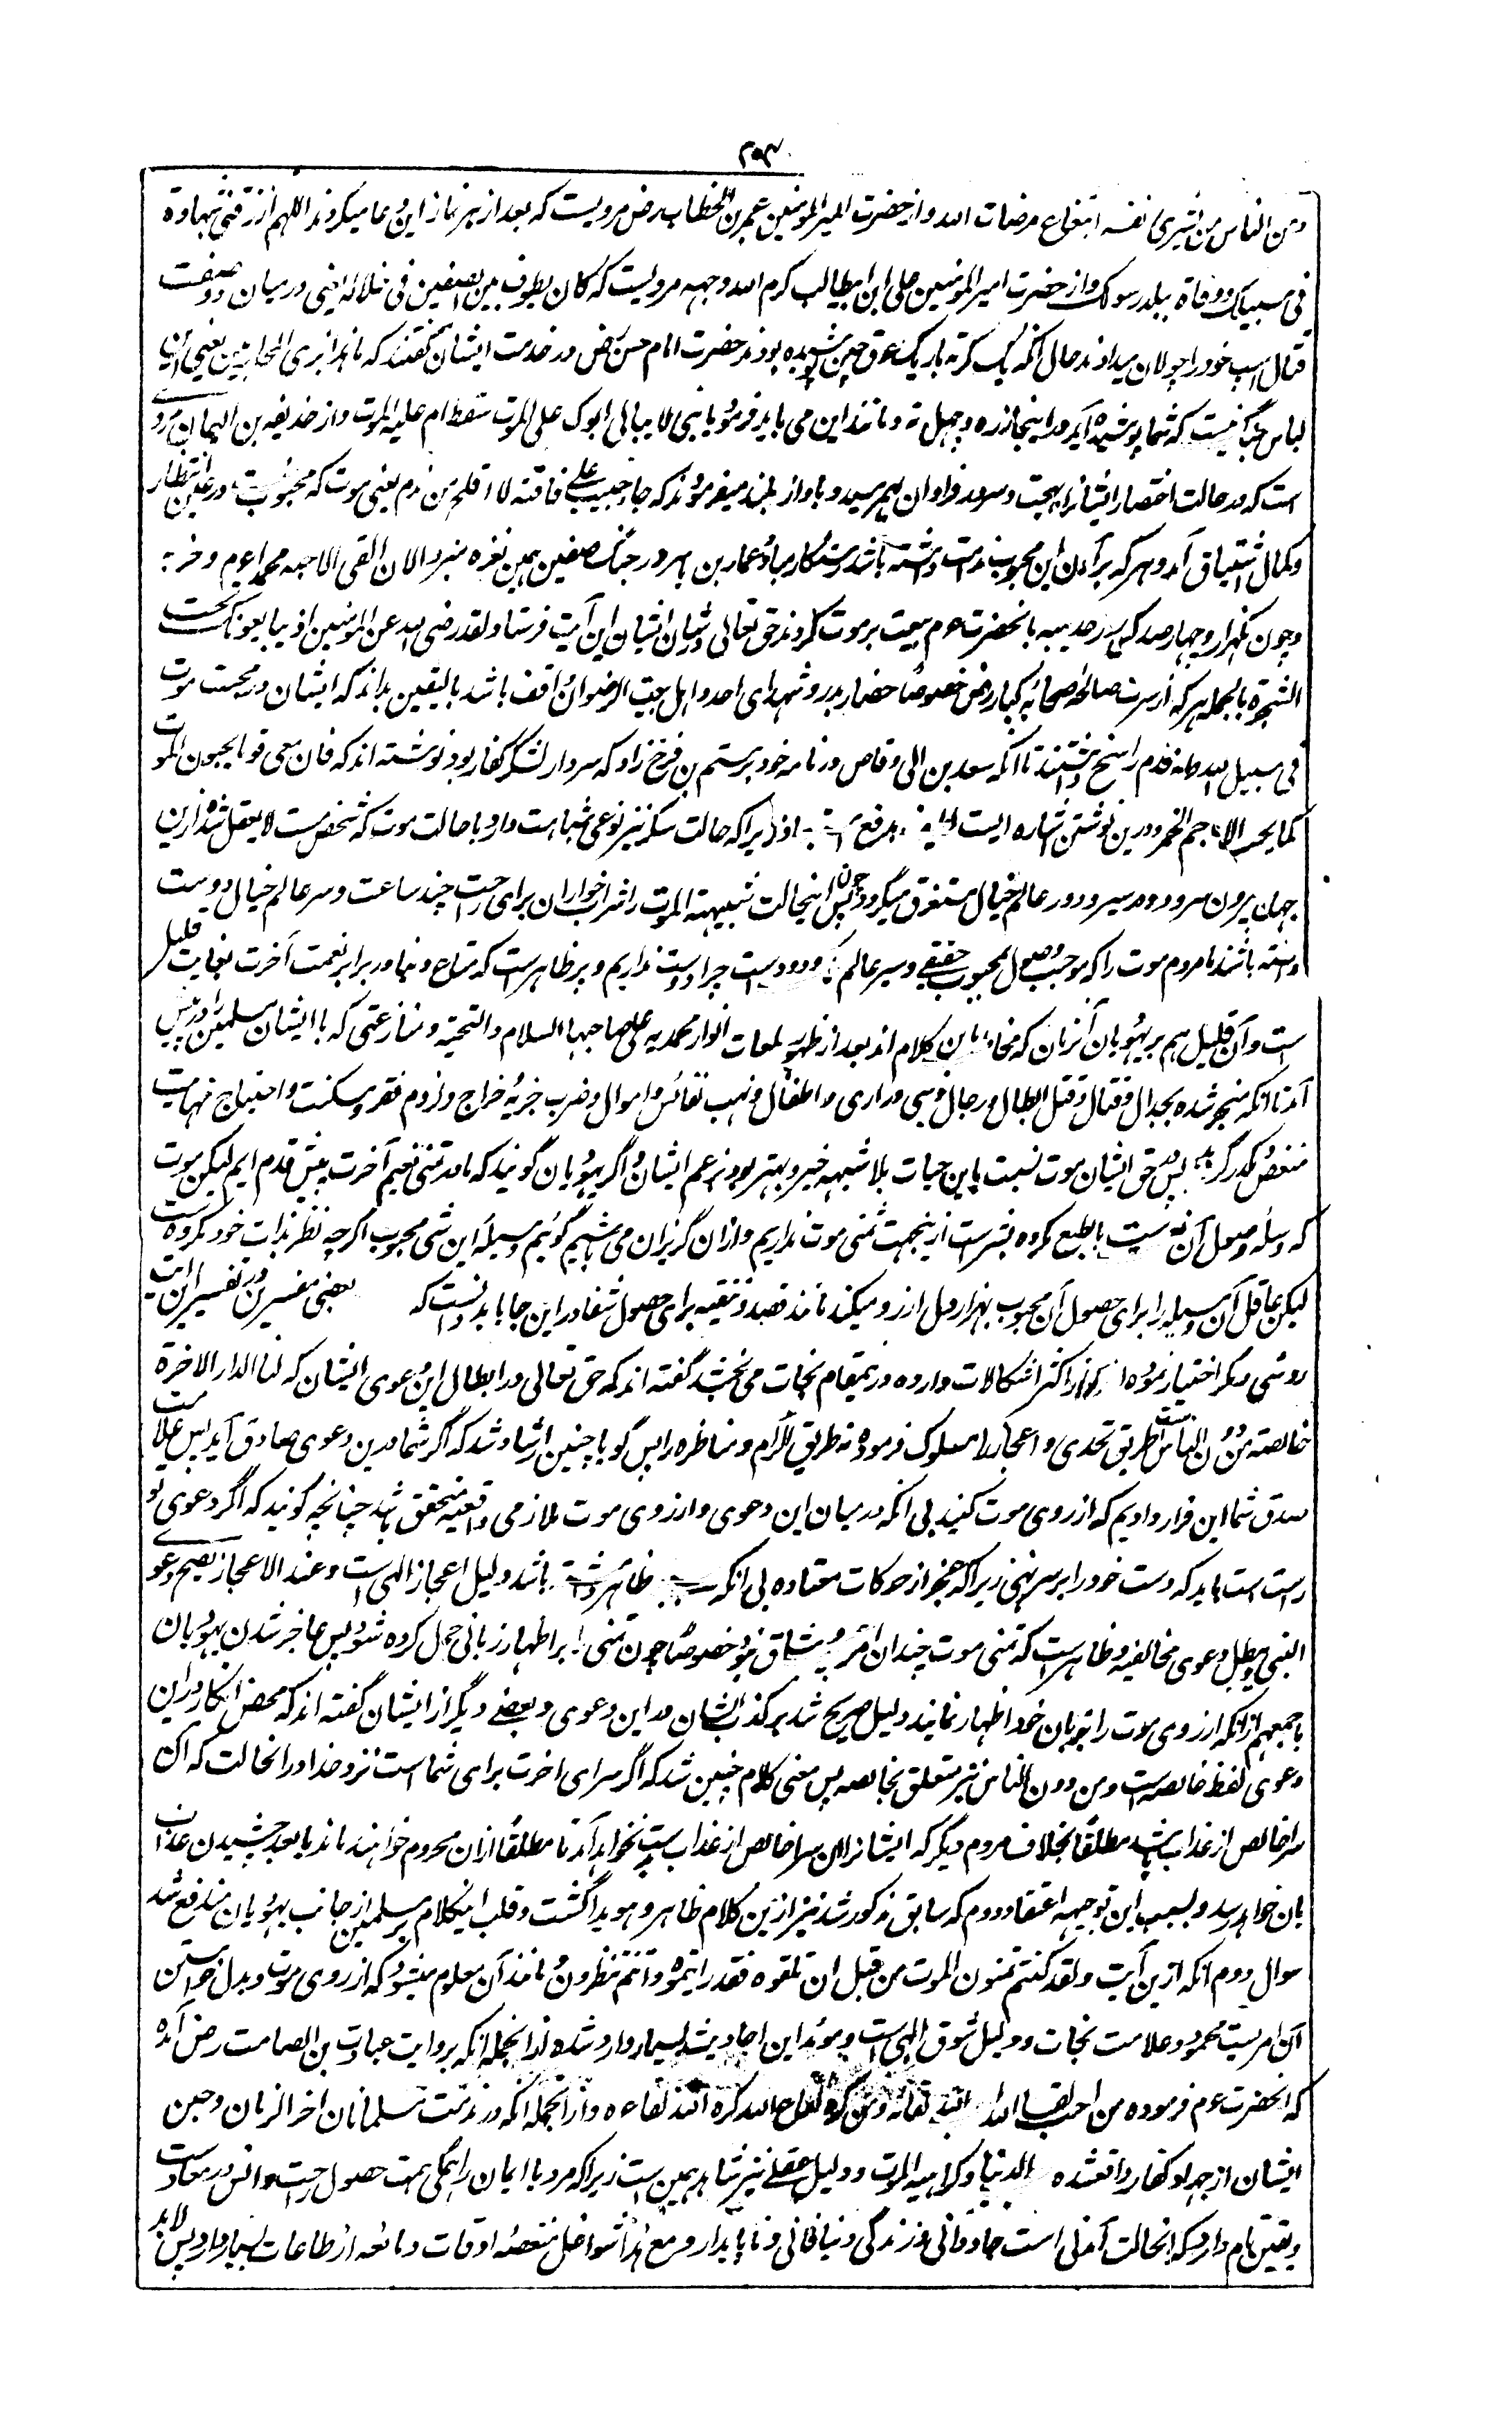 ۲۵۳
ومن الناس من یشری نفسه ابتغاء مرضات الله و از حضرت امیر المومنین عمر بن الخطاب رض مرویست که بعد از هر نماز این دعا میکردند اللهم ارزقنی شهادة
فی سبیلک ووفاة ببلد رسولک و از حضرت امیر المومنین علی ابن ابیطالب کرم الله وجهه مرویست که کان یطوف بین الصفین فی غلاله یعنی درمیان دو صف
قتال اسپ خود را جولان میدادند حال آنکه یک کرته باریک پوشیده بودند حضرت امام حسن رض در خدمت ایشان گفتند که ما هذا بزی المحاربین یعنی این
لباس جنگ نیست که شما پوشیده اید در اینجا زره و چهل ته و مانند این می باید فرمود یا بنی لا یبالی ابوک علی الموت سقط ام علیه الموت و از حذیفه بن الیمان مروی
است که در حالت احتضار ایشانرا بهجت و سرور فراوان بهم رسید و باواز بلند میفرمودند که جاء حبیب علی فاقته لا افلح من ندم یعنی موت که محبوبست در عین انتظار
و کمال اشتیاق آمد و هر که بر آمدن این محبوب ندامت داشته باشد رستگار مباد و عمار بن یاسر در جنگ صفین همین نعره میزد الان القی الاحبه محمدا عم وحزبه
و چون یکهزار و چهار صد کس در حدیبیه با نحضرت عم بیعت بر موت کردند حق تعالی در شان ایشان این آیت فرستاد لقد رضی الله عن المومنین اذ یبایعونک تحت
الشجرة بالجمله هر که از سیرت صالحه صحابه کبار رض خصوصا حضار بدر و شهدای احد و اهل بیعت الرضوان واقف باشد بالیقین بداند که ایشان در محبت موت
فی سبیل الله چه قدم راسخ داشتند تا آنکه سعد بن ابی وقاص در نامه خود برستم بن فرخ زاد که سردار لشکر کفار بود نوشته اند که فان معی قوما یحبون الموت
کما یحب الاعاجم الخمر و درین نوشتن اشاره ایست زیرا که حالت سکر نیز نوعی مشابهت دارد با حالت موت که شخص مست لا یعقل شده ازین
جهان بیرون میرود و در سیر و دور عالم خیال مستغرق میگردد پس چون اینحالت شبیهة الموت را شراب خواران برای راحت چند ساعت و سیر عالم خیال دوست
داشته باشند ما مردم موت را که موجب وصول محبوب حقیقی و سیر عالم دوست چرا دوست نداریم و پر ظاهر است که متاع دنیا در برابر نعمت آخرت بغایت قلیل
است و آن قلیل هم بر یهودیان آنزمان که مخاطب باین کلام اند بعد از ظهور لمعات انوار محمدیه علی صاحبها السلام والتحیة و منازعتی که با ایشان مسلمین را در پیش
آمد تا آنکه منجر شده بجدال و قتال و قتل ابطال و رجال و سبی ذراری و اطفال و نهب نفائس و اموال و ضرب جزیه و خراج و لزوم فقر و مسکنت و احتیاج نهایت
منغص و مکدر گردید پس در حق ایشان موت نسبت باین حیات بلا شبهه خیر و بهتر بود بزعم ایشان و اگر یهودیان گویند که ما در تمنی نعیم آخرت پیش قدم ایم لیکن موت
که وسیله وصول آن نعمت است بالطبع مکروه بشر است ازینجهت تمنی موت نداریم و ازان گریزان می باشیم گوئیم وسیله این شی محبوب اگرچه نظر بذات خود مکروه است
لیکن عاقل آن وسیله را برای حصول آن محبوب بهزار دل آرزو میکند مانند فصد و تنقیه برای حصول شفا در این جا باید دانست که بعضی مفسرین در تفسیر این آیت
روشی دیگر اختیار نموده اند که از اکثر اشکالات وارده درینمقام نجات می بخشد گفته اند که حق تعالی در ابطال این دعوی ایشان که لنا الدار الاخرة
خالصة من دون الناس است طریق تحدی و اعجاز را مسلوک فرموده نه طریق الزام و مناظره را پس گویا چنین ارشاد شد که اگر شما درین دعوی صادق آید پس علامت
صدق شما این قرار دادیم که آرزوی موت کنید بی آنکه درمیان این دعوی و آرزوی موت ملازمی واقعیه متحقق باشد چنانچه گویند که اگر دعوی تو
راست است باید که دست خود را بر سر نهی زیرا که عجز از حرکات معتاده بی آنکه ظاهر داشته باشد دلیل اعجاز الهی است و عند الاعجاز یصح دعوی
النبی و یبطل دعوی مخالفیه و ظاهر است که تمنی موت چندان امر شاق نبود خصوصا چون تمنی را بر اظهار زبانی حمل کرده شود پس عاجز شدن یهودیان
باجمعهم از آنکه آرزوی موت را بزبان خود اظهار نمایند دلیل صریح شد بر کذب ایشان در این دعوی و بعضی دیگر از ایشان گفته اند که محض انکار در این
دعوی لفظ خالصه است و من دون الناس نیز متعلق بخالصه پس معنی کلام چنین شد که اگر سرای آخرت برای شما است نزد خدا در انحالت که آن
سرا خالص از عذاب باشد مطلقا بخلاف مردم دیگر که ایشانرا آن سرا خالص از عذاب بدست نخواهد آمد تا مطلقا ازان محروم خواهند ماند یا بعد چشیدن عذاب
بان خواهد رسید و بسبب این توجیهه اعتقاد دوم که سابق مذکور شد نیز ازین کلام ظاهر و هویدا گشت و قلب اینکلام بر مسلمین از جانب یهودیان مندفع شد
سوال دوم آنکه ازین آیت و لقد کنتم تمنون الموت من قبل ان تلقوه فقد رایتموه وانتم تنظرون و مانند آن معلوم میشود که آرزوی موت و بدل خواستن
آن امریست محمود و علامت نجات و دلیل شوق الهی است و موید این احادیث بسیار وارد شده از انجمله آنکه بروایت عبادت بن الصامت رض آمده
که آنحضرت عم فرموده من احب لقاء الله احب الله لقائه ومن کره لقاء الله کره الله لقاءه و از انجمله آنکه در مذمت مسلمانان اخر الزمان و جبن
ایشان از جهاد کفار واقعشده الدنیا وکراهیة الموت و دلیل عقلی نیز شاهد همین است زیرا که مرد با ایمان را همگی همت حصول راحت و انس در معاد است
و یقین تام دارد که انحالت آمدنی است جاودانی و زندگی دنیا فانی و ناپایدار و مع هذا شواغل منغصه اوقات و مانعه از طاعات بسیار دارد پس لابد